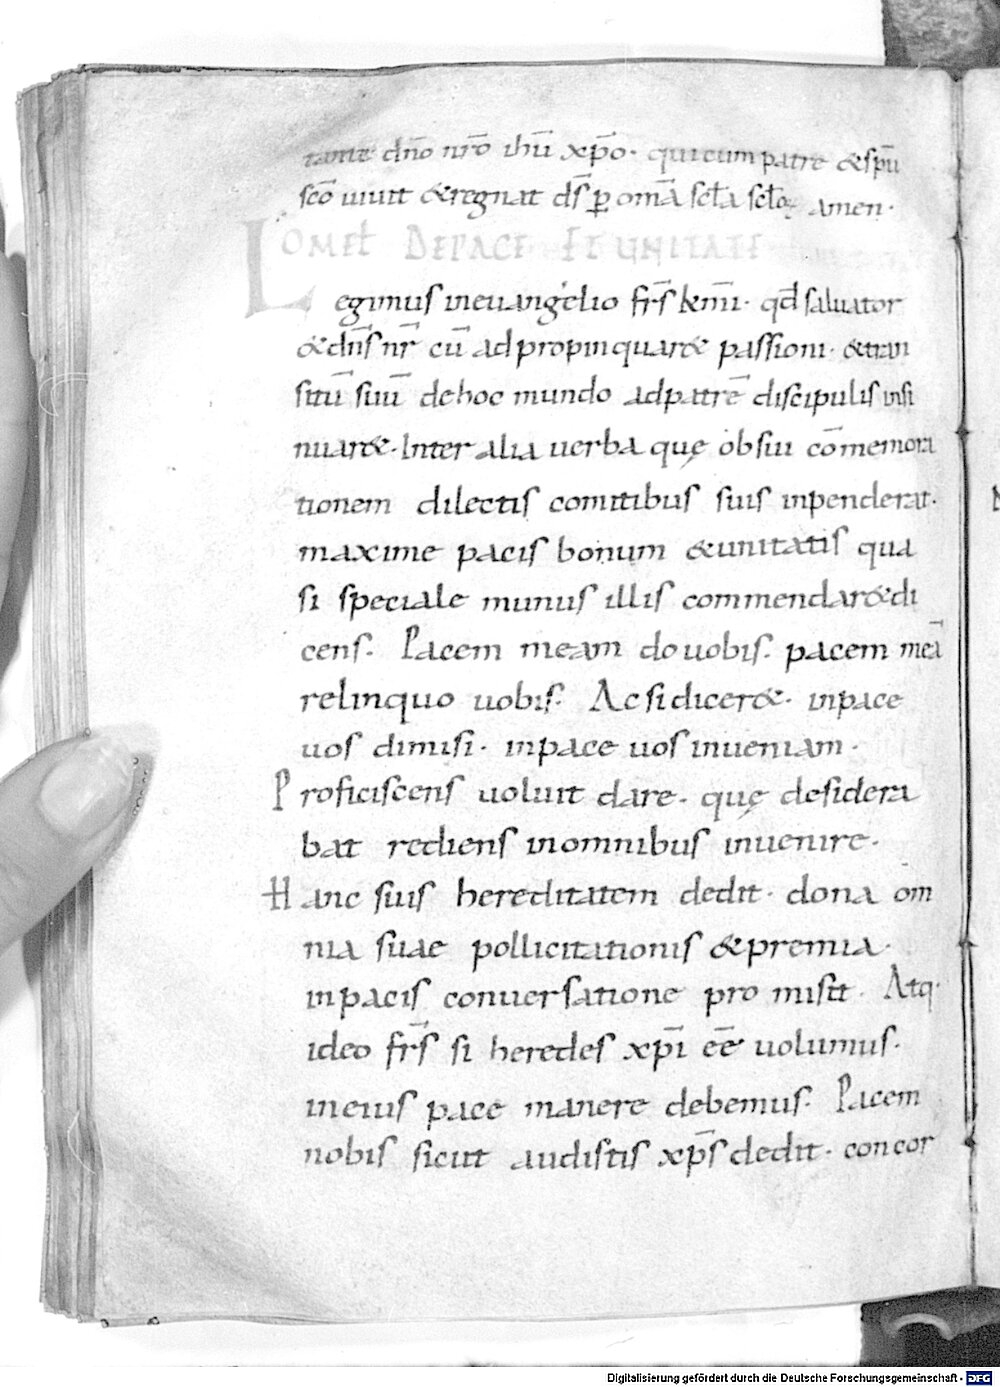 tante dn̄o nr̄o ihū xp̄o. qui cum patre &sp̄u
sc̄o uiuit &regnat d̄s ꝑ om̄a sc̄l̄a sc̄l̄oꝝ amen.
OMEL̄ DEPACE ET UNITATE
Legimus ineuangelio fr̄s km̄i. qd̄ saluator
&dn̄s nr̄ cū adpropinquar& passioni. &tran
sitū suū dehoc mundo adpatrē discipulis insi
nuar&. Inter alia uerba quę ob sui cōmemora
tionem dilectis comitibus suis inpenderat.
maxime pacis bonum &unitatis qua
si speciale munus illis commendar& di
cens. Pacem meam do uobis. pacem meā
relinquo uobis. Ac si dicer&. inpace
uos dimisi. inpace uos inueniam.
Proficiscens uoluit dare. quę desidera
bat rediens inomnibus inuenire.
Hanc suis hereditatem dedit. dona om
nia suae pollicitationis &premia.
inpacis conuersatione promisit. Atq.
ideo fr̄s si heredes xp̄i eē uolumus.
ineius pace manere debemus. Pacem
nobis sicut audistis xp̄s dedit. concor
Digitalisierung gefördert durch die Deutsche Forschungsgemeinschaft - DFG